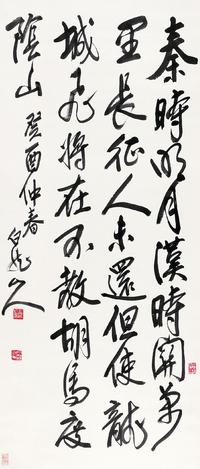 秦時明月漢時關萬
里長征人未還但使龍
城飛將在不教胡馬度
陰山 癸酉仲春